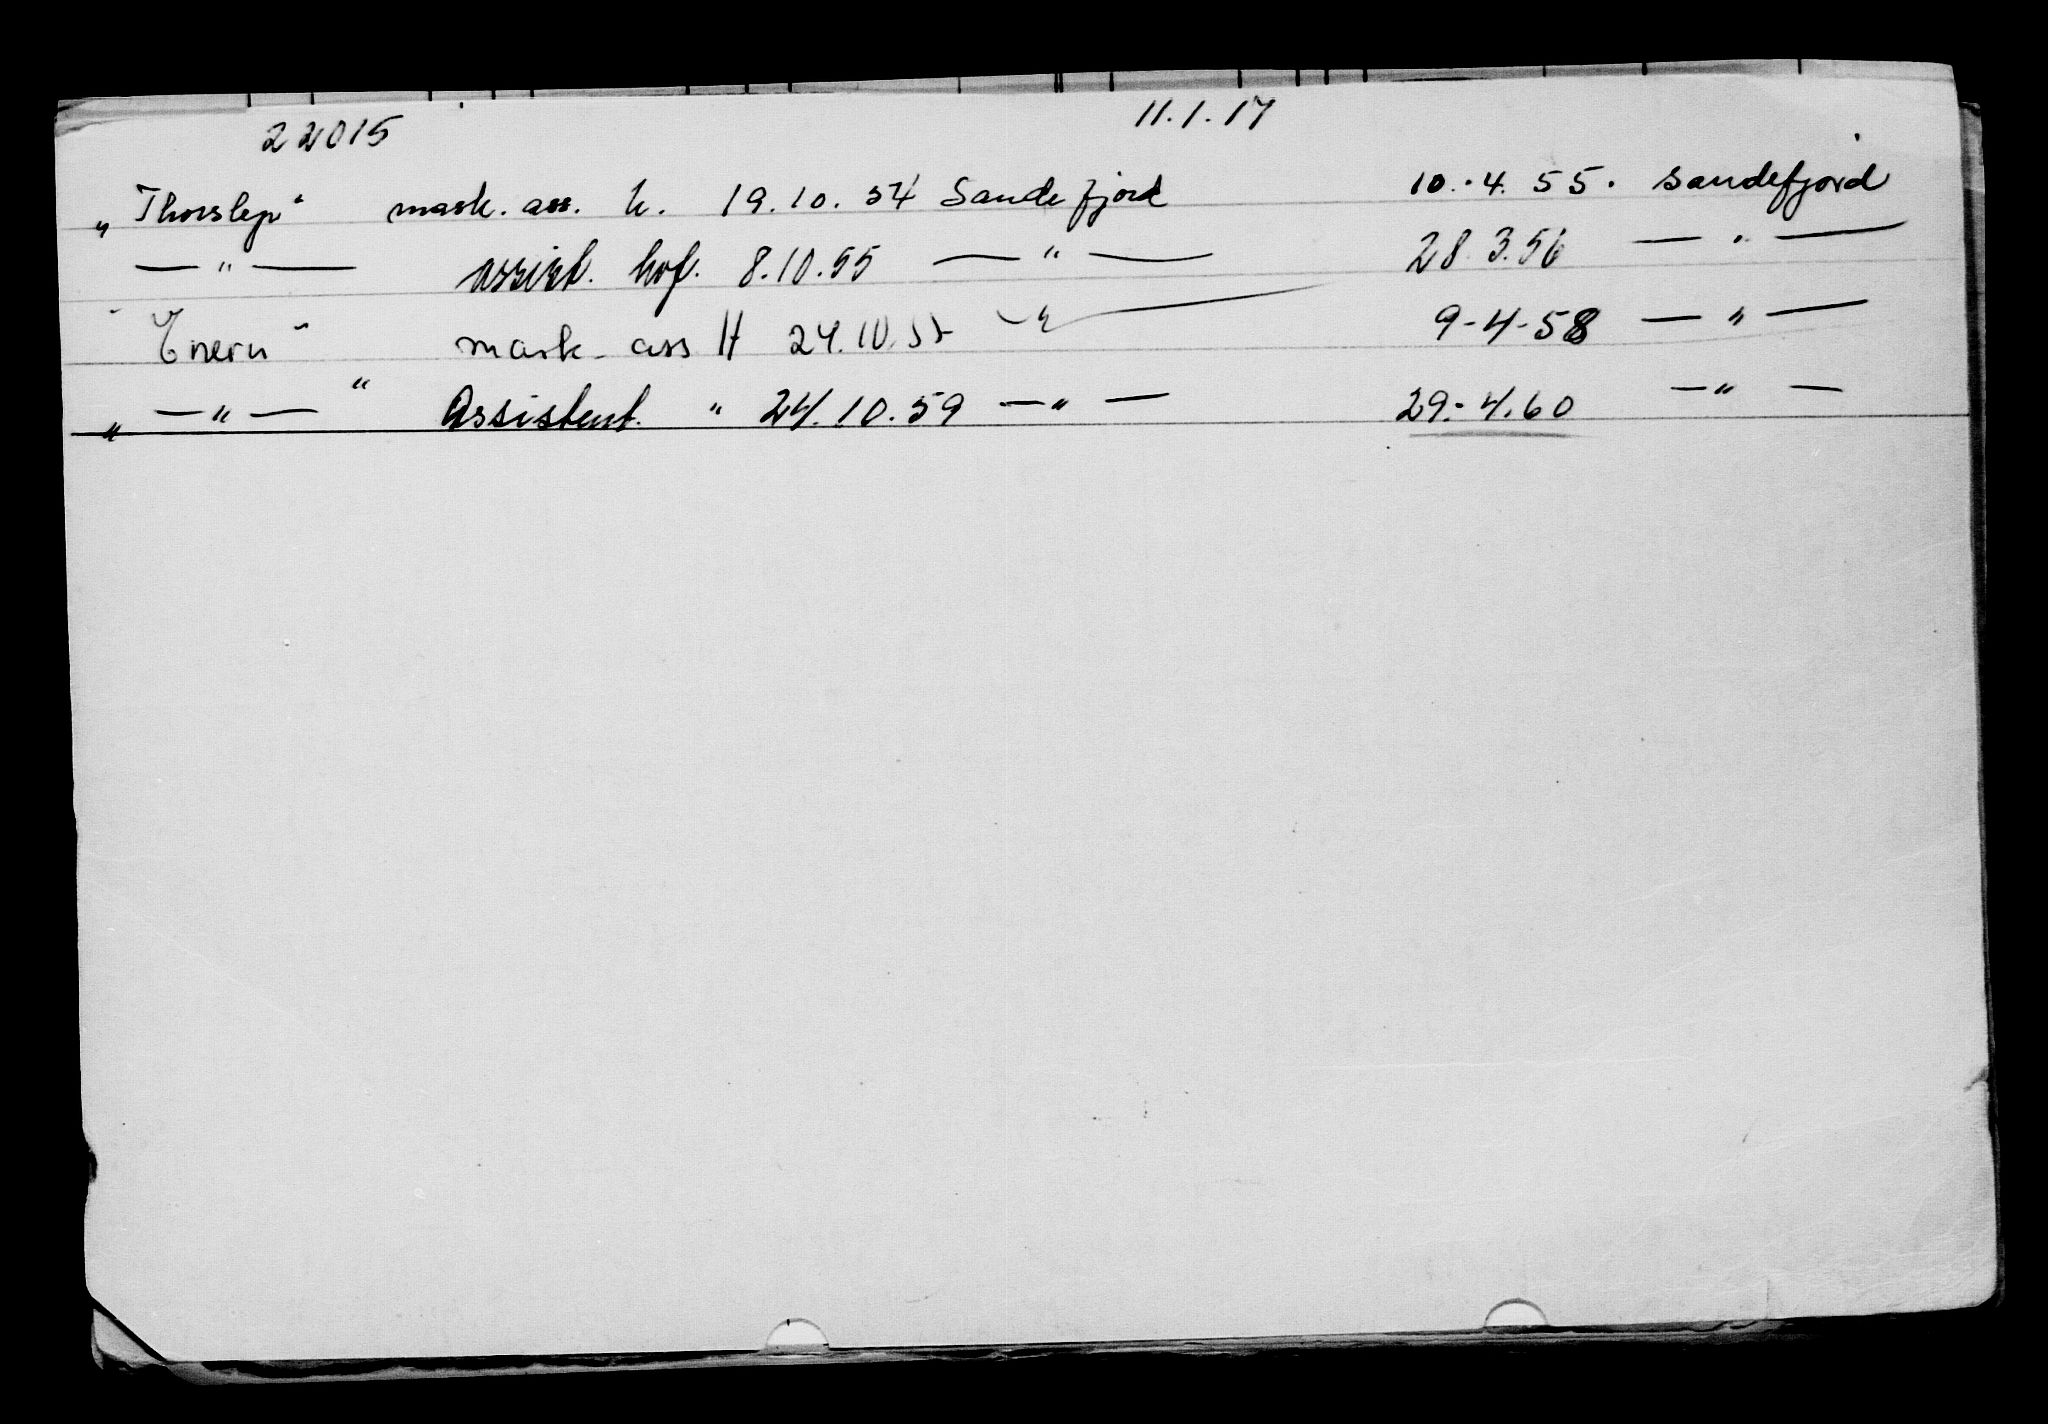 22015 11.1.17
„ Thorslep“ mask. ass. h. 19.10.54 Sandefjord 10.4.55. Sandefjord
— " — assist. hvf. 8.10.55 — " — 28.3.56 — " —
" Enern" mask. ass H 24.10. — " — 9-4-58 — " —
„ — " — " Assistent. " 24.10.59 — " — 29.-4.60 — " —